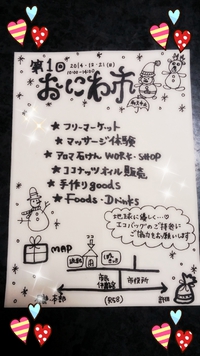 第1回
2014・12・21(日)
10:00〜16:00
おにわ市
★ フリーマーケット
★ マッサージ体験
★ アロマ石けん WORK・SHOP
★ ココナッツオイル販売
★ 手作りgoods
★ Foods・Drinks
地球に優しい…♡
エコバッグのご持参に
ご協力をお願いします
MAP
ココ
市役所
(R58)